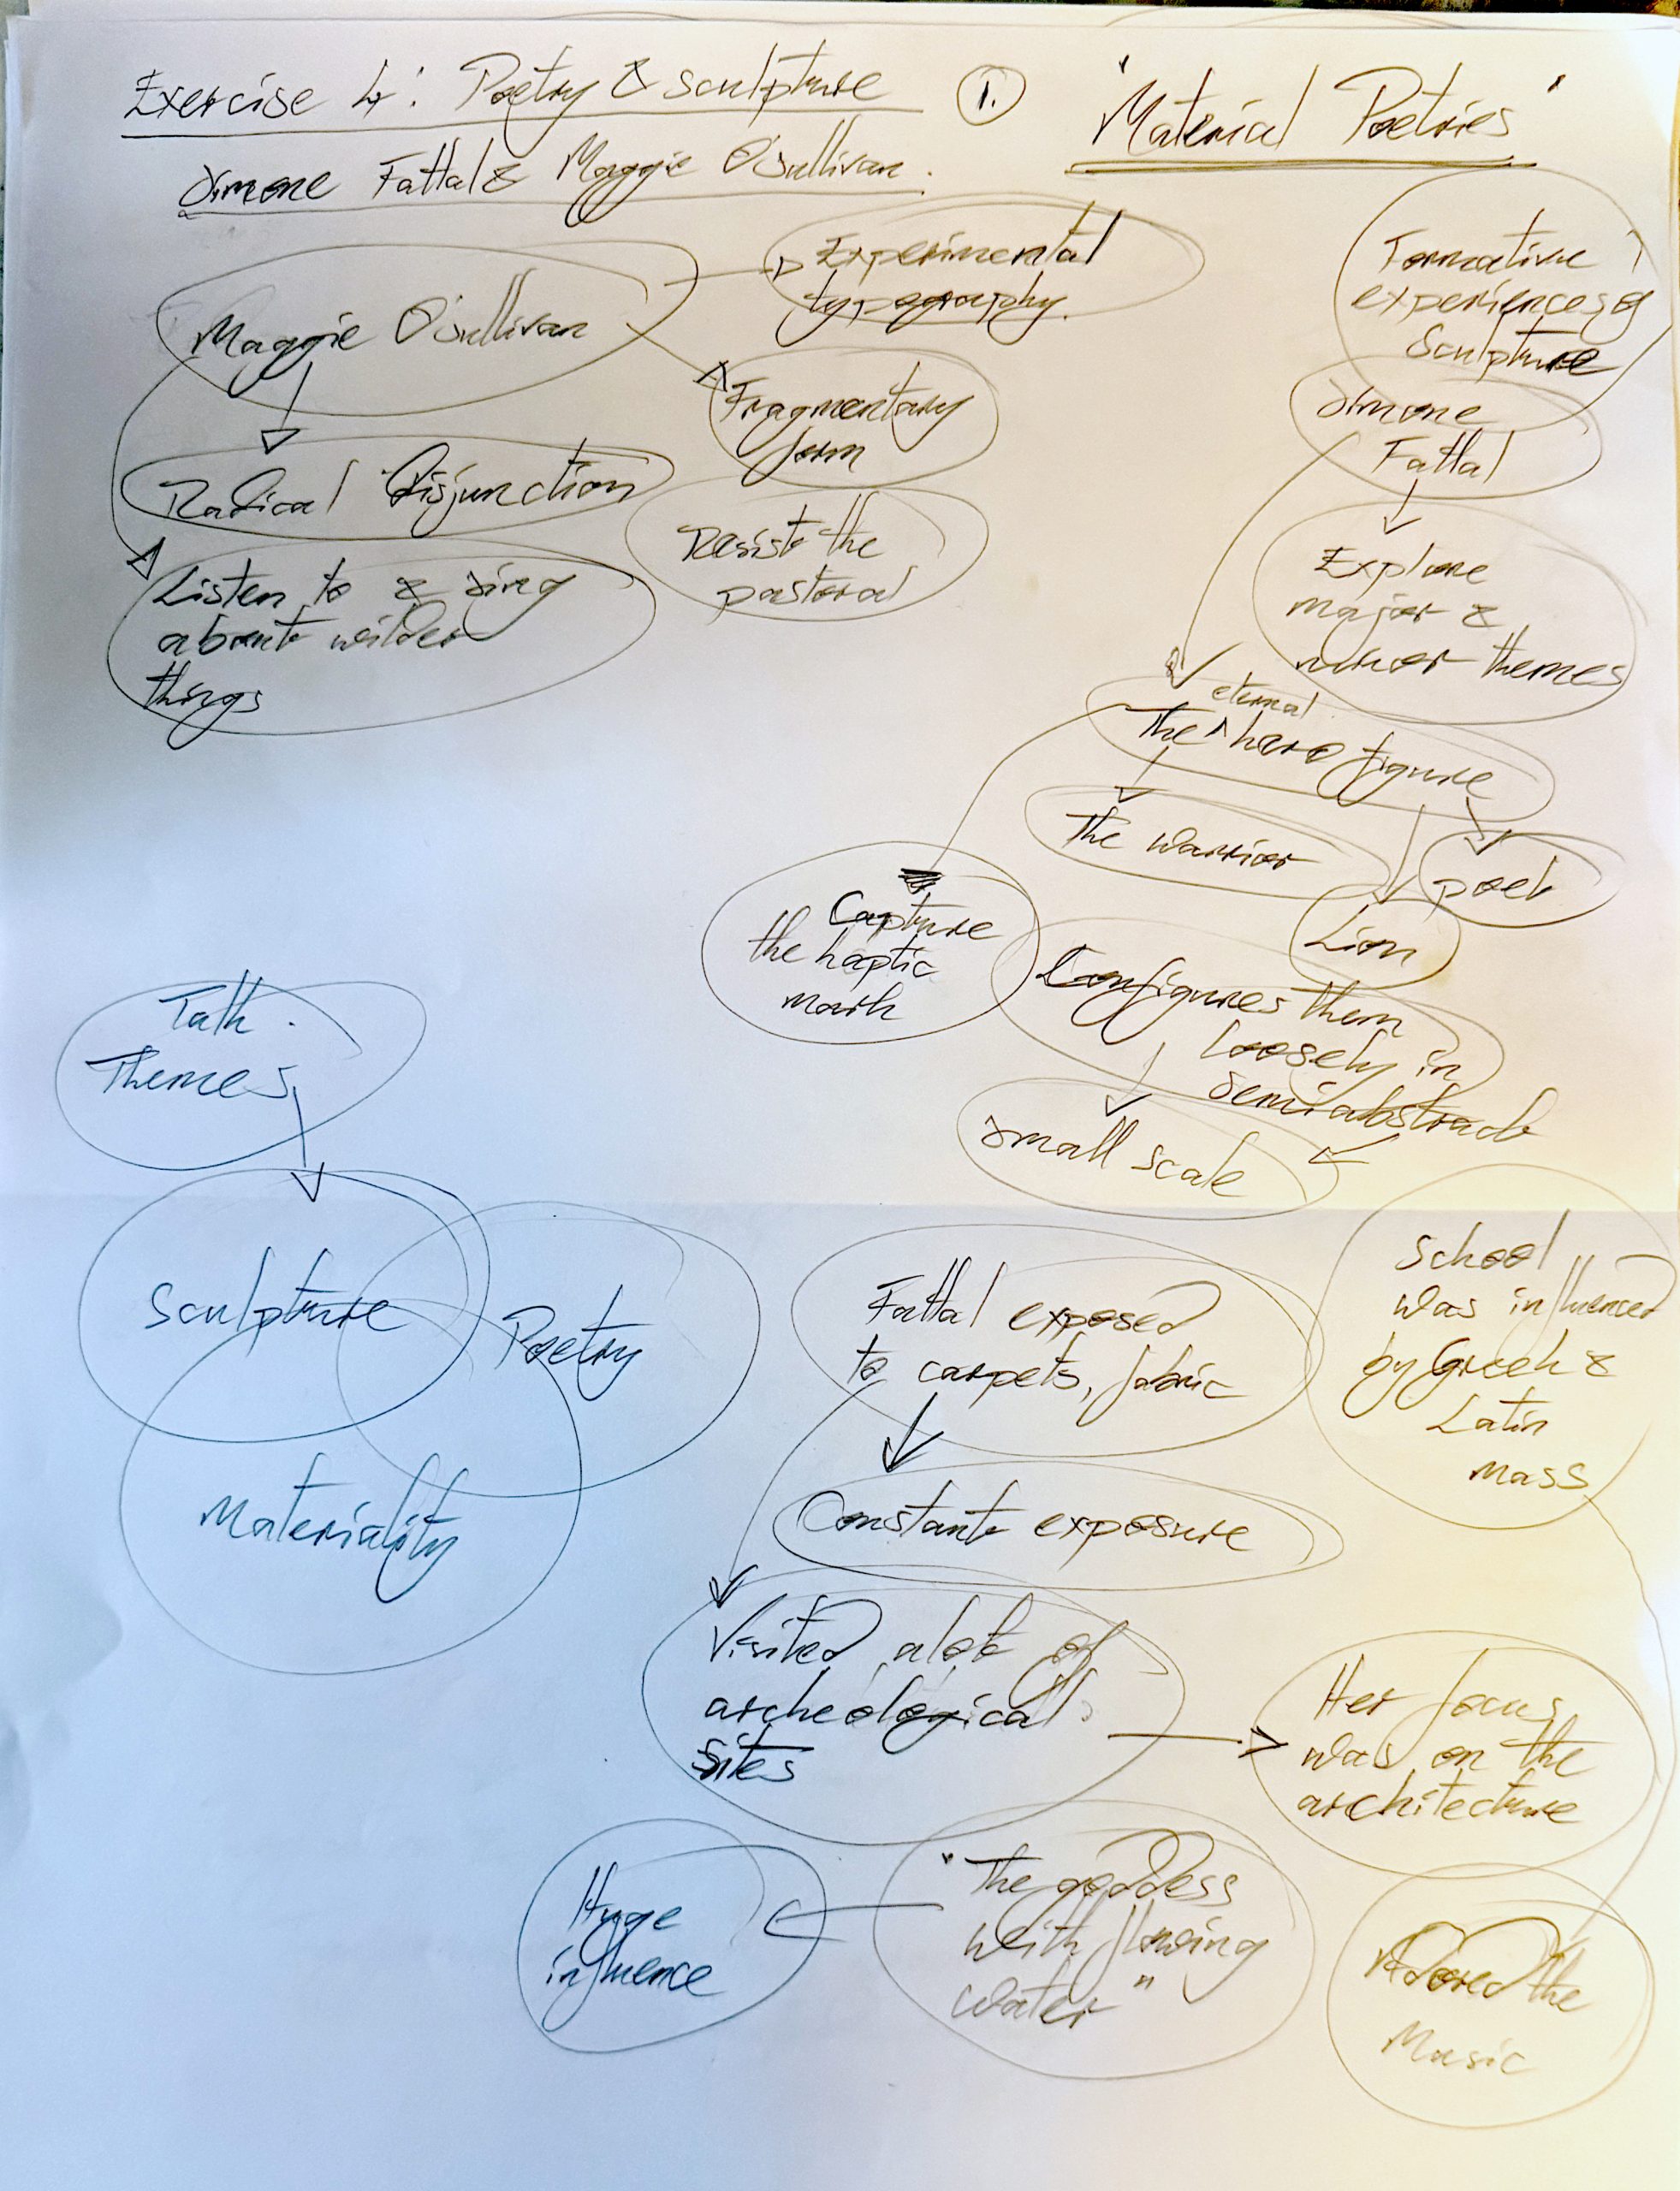 Exercise 4: Poetry & sculpture
①.
"Material Poetries"
Simone Fattal & Maggie O'Sullivan.
Maggie O'Sullivan
Experimental
typography.
Fragmentary
form
Radical Disjunction
Resist the
pastoral
Listen to & sing
about wilder
things
Formative
experiences of
Sculpture
Simone
Fattal
Explore
major &
minor themes
eternal
The ^ hero figure
The warrior
poet
Lion
Capture
the haptic
mark
Configures them
loosely in
semi abstract
small scale
Talk.
Themes
Sculpture
Poetry
Materiality
Fattal exposed
to carpets, fabric
Constant exposure
Visited alot of
archeological
sites
Her focus
was on the
architecture
"The goddess
with flowing
water"
Huge
influence
School
was influenced
by Greek &
Latin
mass
Adored the
Music